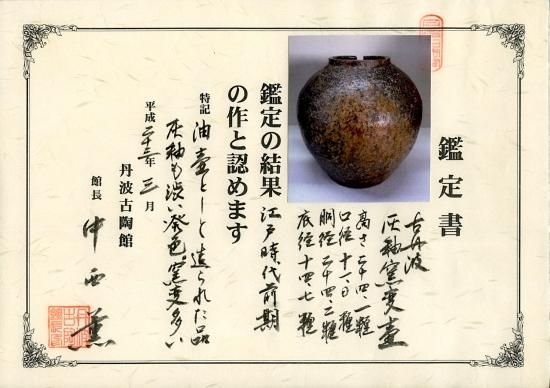 鑑定書
古丹波
灰釉窯変壷
高さ 二十四、一糎
口径 十一、〇糎
胴径 二十四、二糎
底径 十四、七糎
鑑定の結果 江戸時代前期
の作と認めます
特記 油壷として造られた品
灰釉も渋い発色窯変多い
平成二十三年 三月
丹波古陶館
館長 中西薫